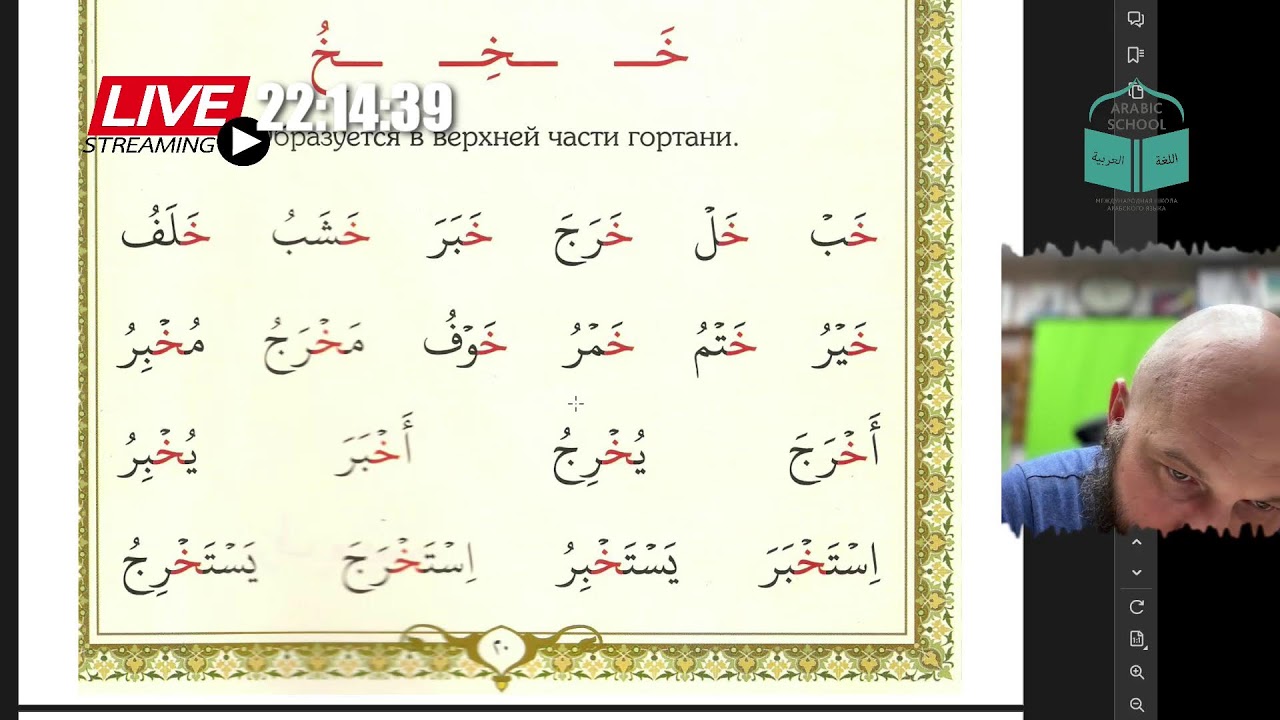 خَـ ـخِـ ـخُ
LIVE 22:14:39
STREAMING
бразуется в верхней части гортани.
خَبْ خَلْ خَرَجَ خَبَرَ خَشَبُ خَلَفُ
خَيْرُ خَتْمُ خَمْرُ خَوْفُ مَخْرَجُ مُخْبِرُ
أَخْرَجَ يُخْرِجُ أَخْبَرَ يُخْبِرُ
اِسْتَخْبَرَ يَسْتَخْبِرُ اِسْتَخْرَجَ يَسْتَخْرِجُ
٢٠
ARABIC
SCHOOL
العربية اللغة
МЕЖДУНАРОДНАЯ ШКОЛА
АРАБСКОГО ЯЗЫКА